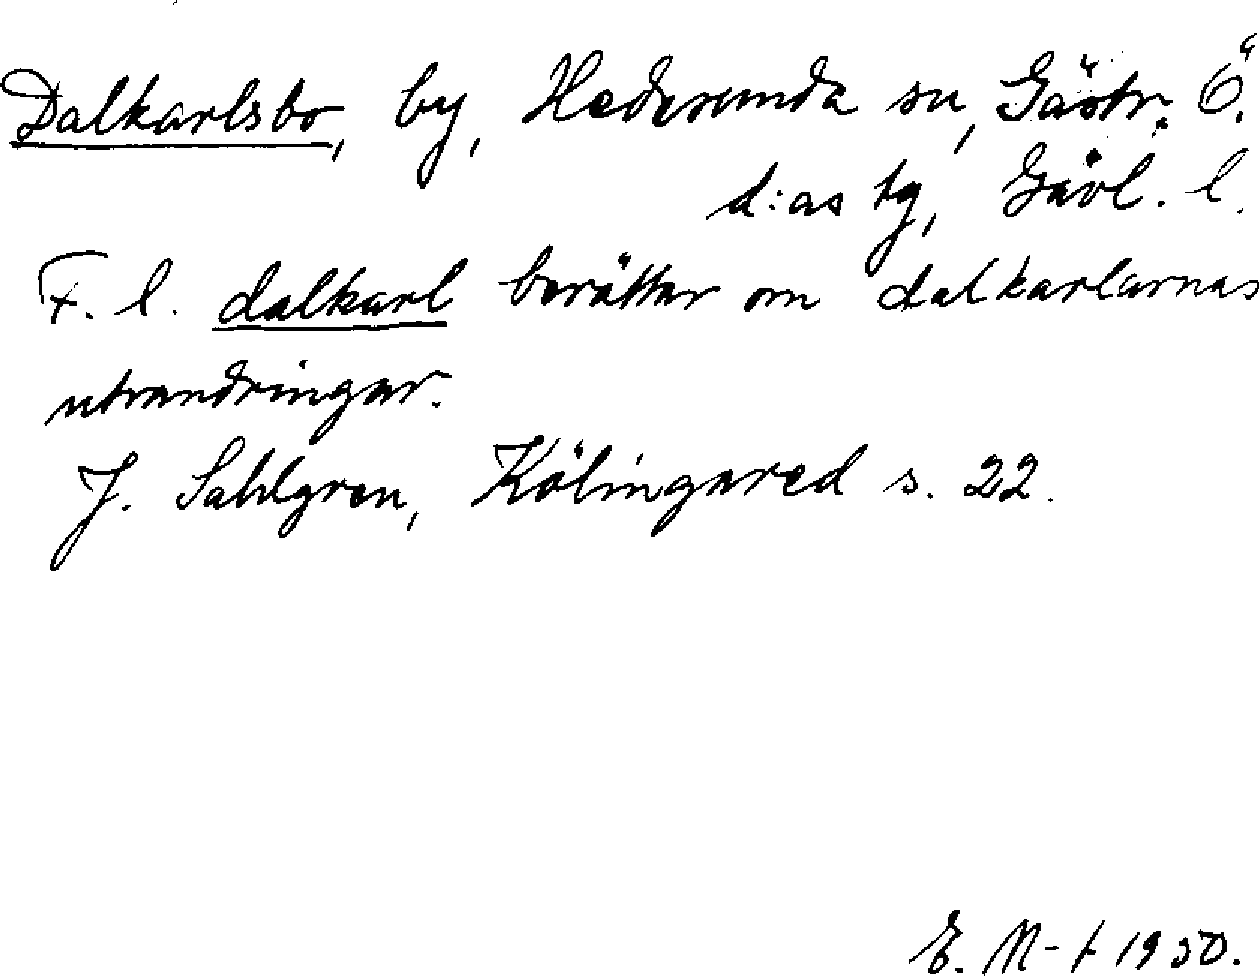 Dalkarlsbo, by, Hedesunda sn, Gästr. Ö.
d:as tg, Gävl. l.
F. l. dalkarl berättar om dalkarlarnas
utvandringar.
J. Sahlgren, Kölingared s. 22.
E. M-t 1930.